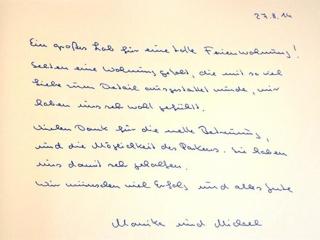 27.8.14
Ein großes Lob für eine tolle Ferienwohnung!
Selten eine Wohnung gehabt, die mit so viel
Liebe zum Detail ausgestattet wurde, wir
haben uns seh wohl gefühlt.
Vielen Dank für die nette Betreuung,
und die Möglichkeit des Parkens. Sie haben
uns damit seh geholfen.
Wir wünschen viel Erfolg und alles Gute
Monika und Michael